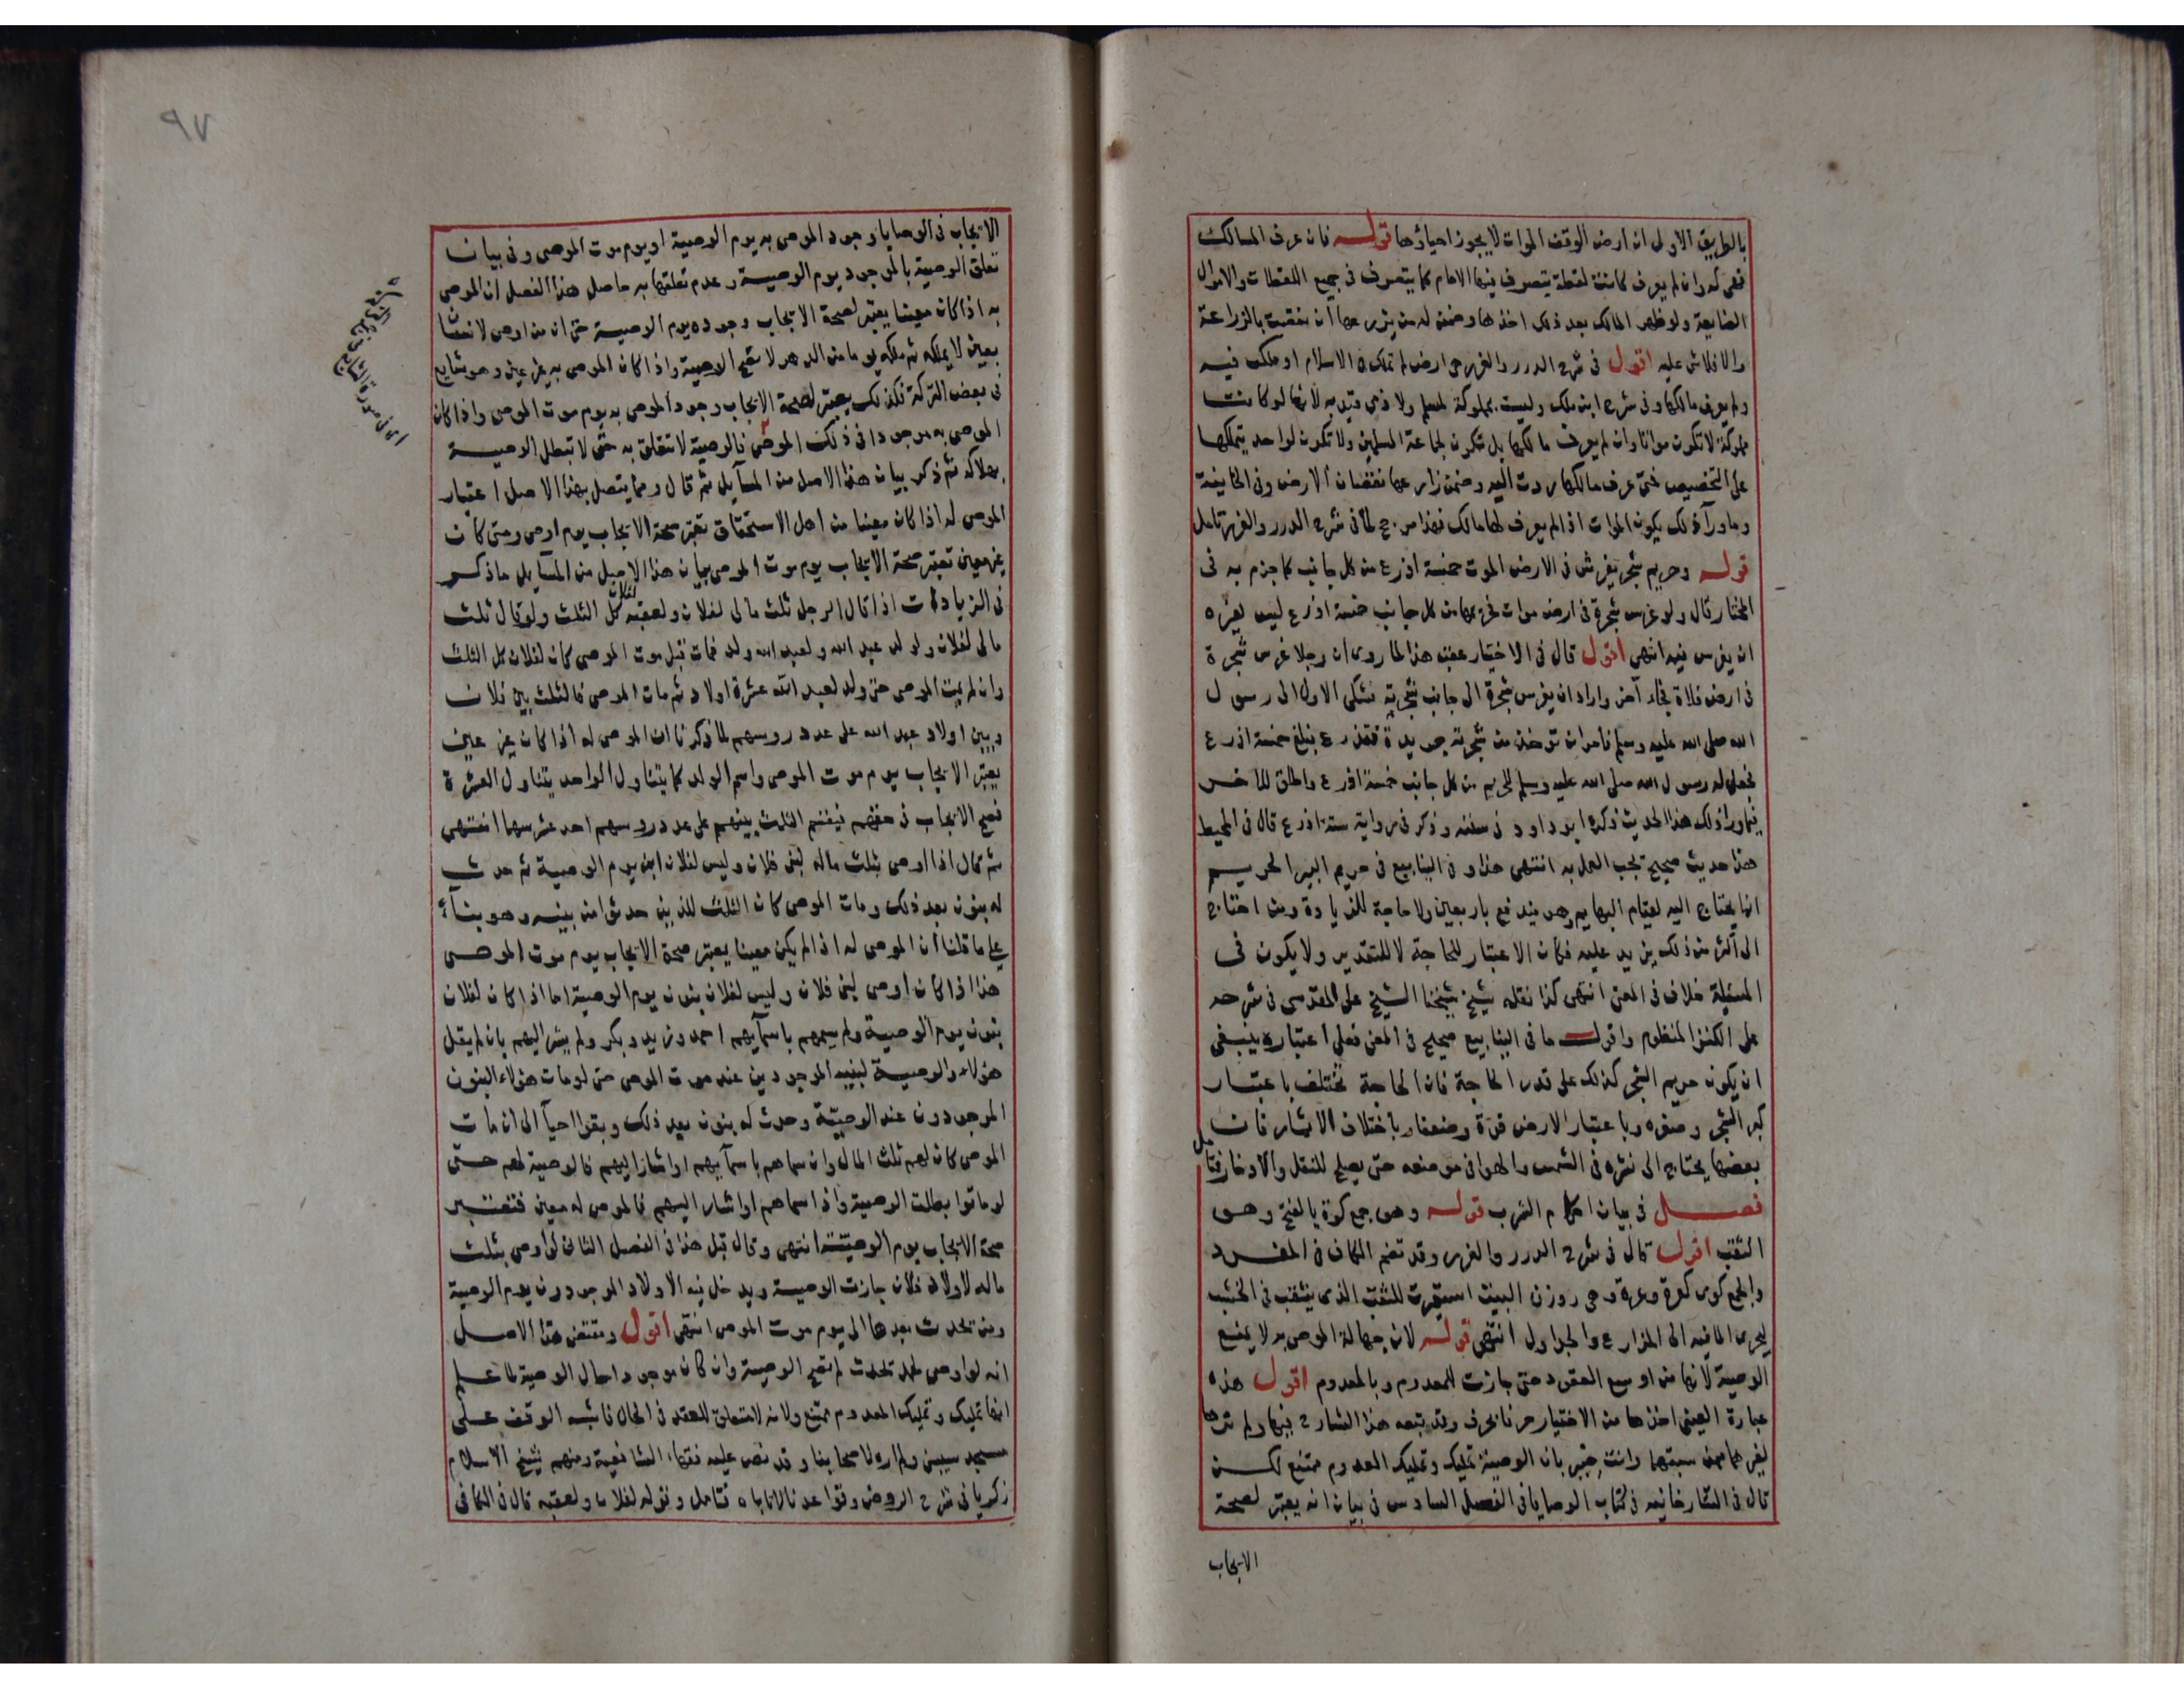 بالطريق الاولى ان ارض الوقف الموات لا يجوز احياؤها قوله فان عرف المالك
فهى له وان لم يعرف كانت لقطة يتصرف فيها الامام كما يتصرف فى جميع اللقطات والاموال
الضايعة ولو ظهر المالك بعد ذلك اخذها وضمن له من يزرعها ان نقصت بالزراعة
والا فلا شئ عليه اقول فى شرح الدرر والغرر هى ارض لم تملك فى الاسلام او ملكت فيه
ولم يعرف مالكها وفى شرح ابن ملك وليست بمملوكة لمسلم ولا ذمى قيد به لانها لو كانت
مملوكة لا تكون مواتا وان لم يعرف مالكها بل تكون لجماعة المسلمين ولا تكون لواحد يتملكها
على التخصيص حتى عرف مالكها ردت اليه وضمن زارعها نقصان الارض وفى الخانية
وما ورآ ذلك يكون الموات اذا لم يعرف لها مالك فهذا مرجح لما فى شرح الدرر والغرر تامل
قوله وحريم شجر يغرس فى الارض الموت خمسة اذرع من كل جانب كما جزم به فى
المختار قال ولو غرس شجرة فى ارض موات فحريمها من كل جانب خمسة اذرع ليس لغيره
ان يغرس فيه انتهى اقول قال فى الاختيار عقب هذا لما روى ان رجلا غرس شجرة
فى ارض فلاة فجاء آخر واراد ان يغرس شجرة الى جانب شجرته فشكى الاول الى رسول
الله صلى الله عليه وسلم فامر ان تؤخذ من شجرته جريدة فتذرع فبلغ خمسة اذرع
فجعل له رسول الله صلى الله عليه وسلم الحريم من كل جانب خمسة اذرع واطلق للاخر
فيما ورا ذلك هذا الحديث ذكره ابو داود فى سننه وذكر فى رواية ستة اذرع قال فى المحيط
هذا حديث صحيح يجب العمل به انتهى هذا وفى الينابيع فى حريم البير الحريم
انما يحتاج اليه لقيام البهايم وهو يندفع باربعين ولا حاجة للزيادة ومن احتاج
الى اكثر من ذلك يزيد عليه فكان الاعتبار للحاجة لا للتقدير ولا يكون فى
المسئلة خلاف فى المعنى انتهى كذا نقله شيخ شيخنا الشيخ على المقدسى فى شرحه
على الكنز المنظوم واقول ما فى الينابيع صحيح فى المعنى فعلى اعتباره ينبغى
ان يكون حريم الشجر كذلك على قدر الحاجة فان الحاجة تختلف باعتبار
كبر الشجر وصغره وباعتبار الارض قوة وضعفا وباختلاف الاثمار فان
بعضها يحتاج الى نشره فى الشمس والهوا فى موضعه حتى يصلح للنقل والادخار فتامل
فصل فى بيان احكام الشرب قوله وهى جمع كوة بالفتح وهو
الثقب اقول قال فى شرح الدرر والغرر وقد تضم الكاف فى المفرد
والجمع كوى كعرة وعرة وهى روزن البيت استعيرت للثقب الذى يثقب فى الخشب
ليجرى الما فيه الى المزارع والجداول انتهى قوله لان جهالة الموصى به لا يمنع
الوصية لانها من اوسع العقود حتى جازت للمعدوم وبالمعدوم اقول هذه
عبارة العينى اخذها من الاختيار حرفا بحرف وقد تبعه هذا الشارح فيها ولم نرها
لغيرهما ممن سبقهما وانت خبير بان الوصية تمليك وتمليك المعدوم ممتنع لكن
قال فى التتارخانيه فى كتاب الوصايا فى الفصل السادس فى بيان انه يعتبر لصحة
الايجاب
٩٧
الايجاب فى الوصايا وجود الموصى به يوم الوصية او يوم موت الموصى وفى بيان
تعلق الوصية بالموجود يوم الوصية وعدم تعلقها به حاصل هذا الفصل ان الموصى
به اذا كان معينا يعتبر لصحة الايجاب وجوده يوم الوصية حتى ان من اوصى لانسان
بعين لا يملكه ثم ملكه يوما من الدهر لا تصح الوصية واذا كان الموصى به غير عين وهو شايع
فى بعض التركة فكذلك يعتبر لصحة الايجاب وجود الموصى به يوم موت الموصى واذا كان
الموصى به موجودا فى ذلك الموضع فالوصية لا تتعلق به حتى لا تبطل الوصية
بهلاكه ثم ذكر بيان هذا الاصل من المسآيل ثم قال ومما يتصل بهذا الاصل اعتبار
الموصى له اذا كان معينا من اهل الاستحقاق تعتبر صحة الايجاب يوم اوصى ومتى كان
غير معين تعتبر صحة الايجاب يوم موت الموصى بيان هذا الاصل من المسآيل ما ذكر
فى الزيادات اذا قال الرجل ثلث مالى لفلان ولعقبه لفلان كل الثلث ولو قال ثلث
مالى لفلان ولولد عبد الله ولعبد الله ولد فمات قبل موت الموصى كان لفلان كل الثلث
وان لم يمت الموصى حتى ولد لعبد الله عشرة اولاد ثم مات الموصى فالثلث بين فلان
وبين اولاد عبد الله على عدد روسهم لما ذكرنا ان الموصى له اذا كان غير عين
يعتبر الايجاب يوم موت الموصى واسم الولد كما يتناول الواحد يتناول العشرة
فصح الايجاب فى حقهم فيقسم الثلث بينهم على عدد روسهم احد عشر سهما انتهى
ثم قال اذا اوصى بثلث ماله لبنى فلان وليس لفلان ابن يوم الوصية ثم حدث
له بنون بعد ذلك ومات الموصى كان الثلث للذين حدثوا من بنيه وهو بناء
على ما قلنا ان الموصى له اذا لم يكن معينا يعتبر صحة الايجاب يوم موت الموصى
هذا اذا كان اوصى لبنى فلان وليس لفلان بنون يوم الوصية اما اذا كان لفلان
بنون يوم الوصية ولم يسمهم باسمآيهم احمد وزيد وبكر ولم يشر اليهم بان لم يقل
هؤلاء والوصية لبنيه الموجودين عند موت الموصى حتى لو مات هؤلاء البنون
الموجودون عند الوصية وحدث له بنون بعد ذلك وبقوا احيآ الى ان مات
الموصى كان لهم ثلث المال وان سماهم باسمآيهم او اشار اليهم فالوصية لهم حتى
لو ماتوا بطلت الوصية واذا سماهم او اشار اليهم فالموصى له معين فتعتبر
صحة الايجاب يوم الوصية انتهى وقال قبل هذا فى الفصل الثانى لو اوصى بثلث
ماله لاولاد فلان جازت الوصية ويدخل فيه الاولاد الموجودون يوم الوصية
ومن يحدث بعدها الى يوم موت الموصى انتهى اقول ومقتضى هذا الاصل
انه لو اوصى لحمل تحدث لم تصح الوصية وان كان موجودا حال الوصية لما علم
انها تمليك وتمليك المعدوم ممتنع ولانه لا متعلق للعقد فى الحال فاشبه الوقف على
مسجد سيبنى ولم اره لاصحابنا وقد نص عليه فقهاء الشافعية ومنهم شيخ الاسلام
زكريا فى شرح الروض وقواعدنا لا تاباه فتامل وقوله لفلان ولعقبه قال فى الكافى